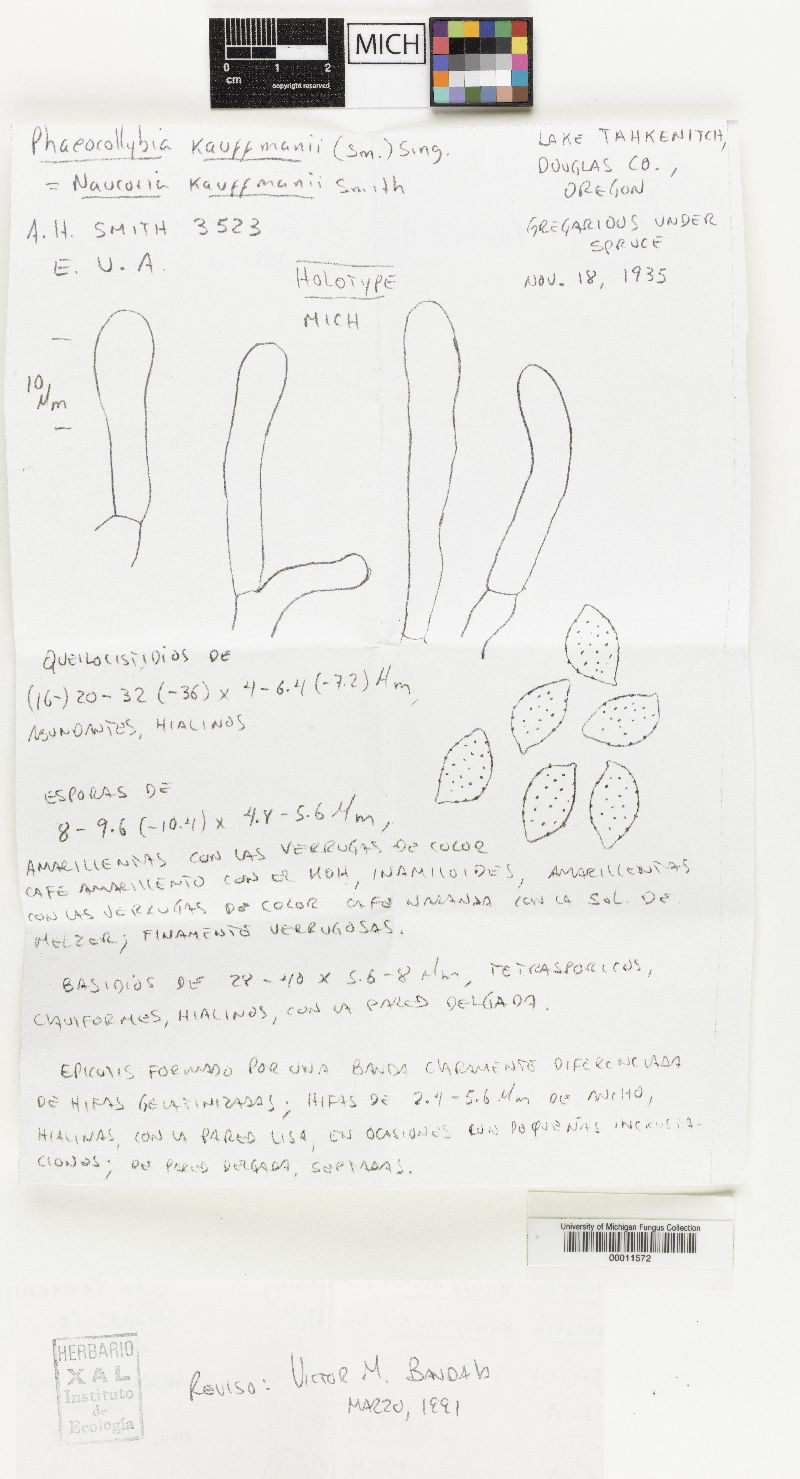 0 1 2
cm
copyright reserved
MICH
Phaeocollybia Kauffmanii (Sm.) Sing.
= Naucoria Kauffmanii Smith
A.H. SMITH 3523
E. U. A.
LAKE TAHKENITCH,
DOUGLAS CO.,
OREGON
GREGARIOUS UNDER
SPRUCE
NOV. 18, 1935
HOLOTYPE
MICH
10 μm
QUEILOCISTIDIOS DE
(16-) 20 - 32 (-36) x 4 - 6.4 (-7.2) μm,
ABUNDANTES, HIALINOS
ESPORAS DE
8 - 9.6 (-10.4) x 4.8 - 5.6 μm,
AMARILLENTAS CON LAS VERRUGAS DE COLOR
CAFE AMARILLENTO CON EL KOH, INAMILOIDES, AMARILLENTAS
CON LAS VERRUGAS DE COLOR CAFE NARANJA CON LA SOL. DE
MELZER; FINAMENTE VERRUGOSAS.
BASIDIOS DE 28 - 40 x 5.6 - 8 μm, TETRASPORICOS,
CLAVIFORMES, HIALINOS, CON LA PARED DELGADA.
EPICUTIS FORMADO POR UNA BANDA CLARAMENTE DIFERENCIADA
DE HIFAS GELATINIZADAS; HIFAS DE 2.4 - 5.6 μm DE ANCHO,
HIALINAS, CON LA PARED LISA, EN OCASIONES CON PEQUEÑAS INCRUSTA-
CIONES; DE PARED DELGADA, SEPTADAS.
University of Michigan Fungus Collection
00011572
HERBARIO
XAL
Instituto
de
Ecología
REVISO: VICTOR M. BANDALA
MARZO, 1991